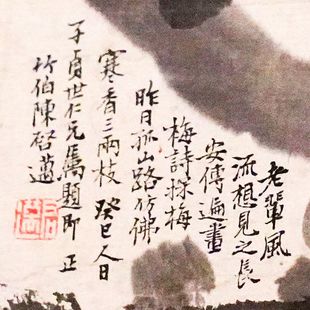 老輩風
流想見之長
安傳遍畫
梅詩探梅
昨日孤山路仿佛
寒香三兩枝 癸巳人日
子貞世仁兄屬題即正
竹伯陳啓邁